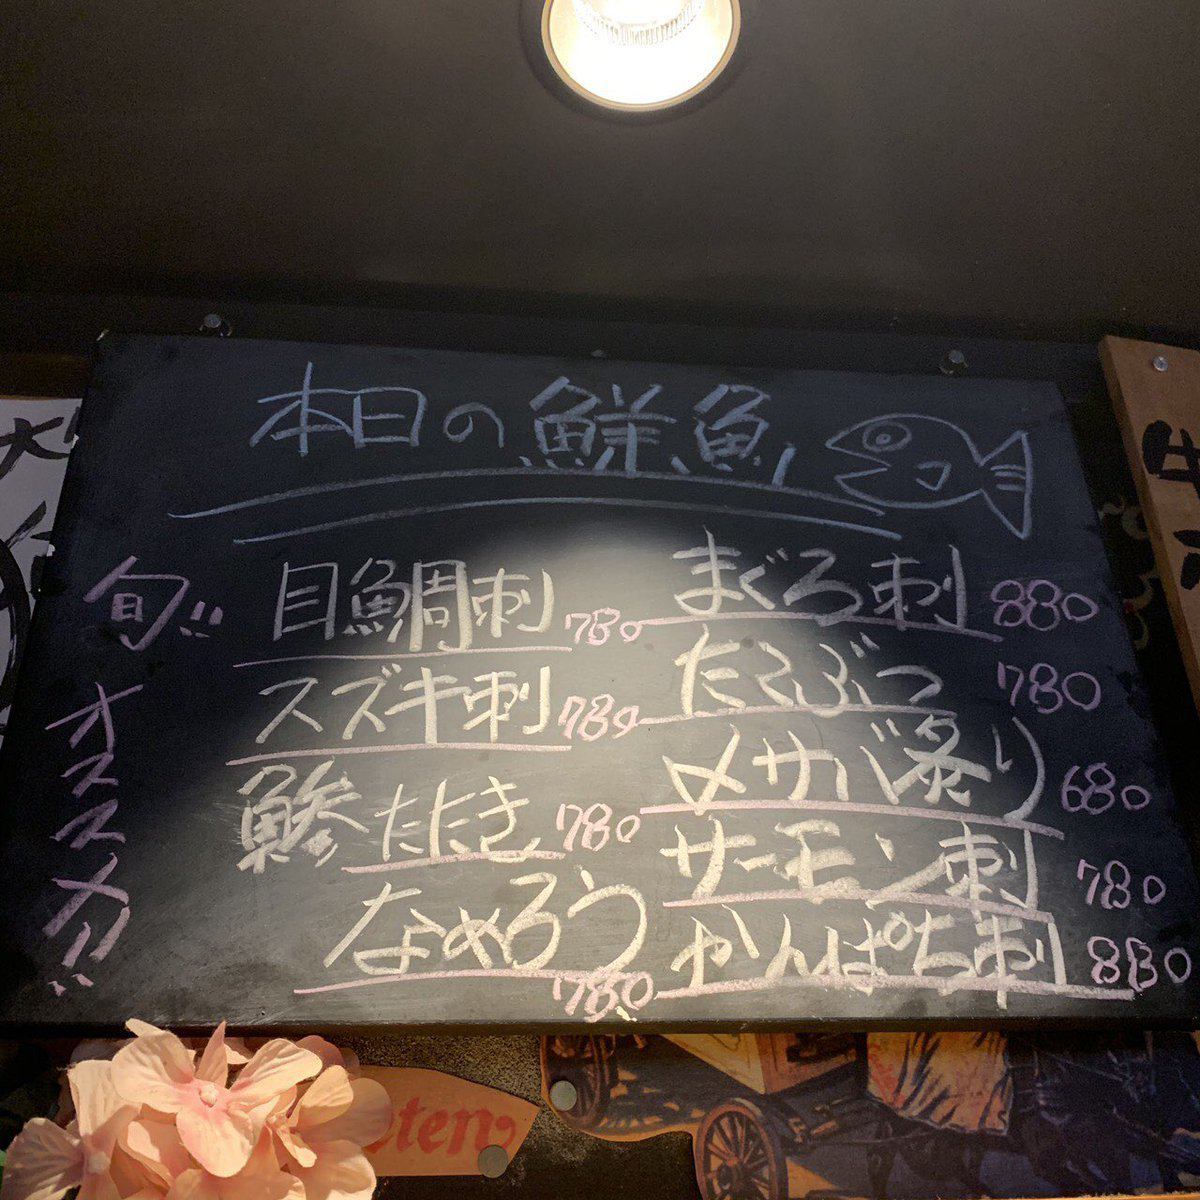 本日の鮮魚
旬!!
オススメ!!
目鯛刺 780
スズキ刺 780
鯵たたき 780
なめろう 780
まぐろ刺 880
たこぶつ 780
〆サバ炙り 680
サーモン刺 780
かんぱち刺 880